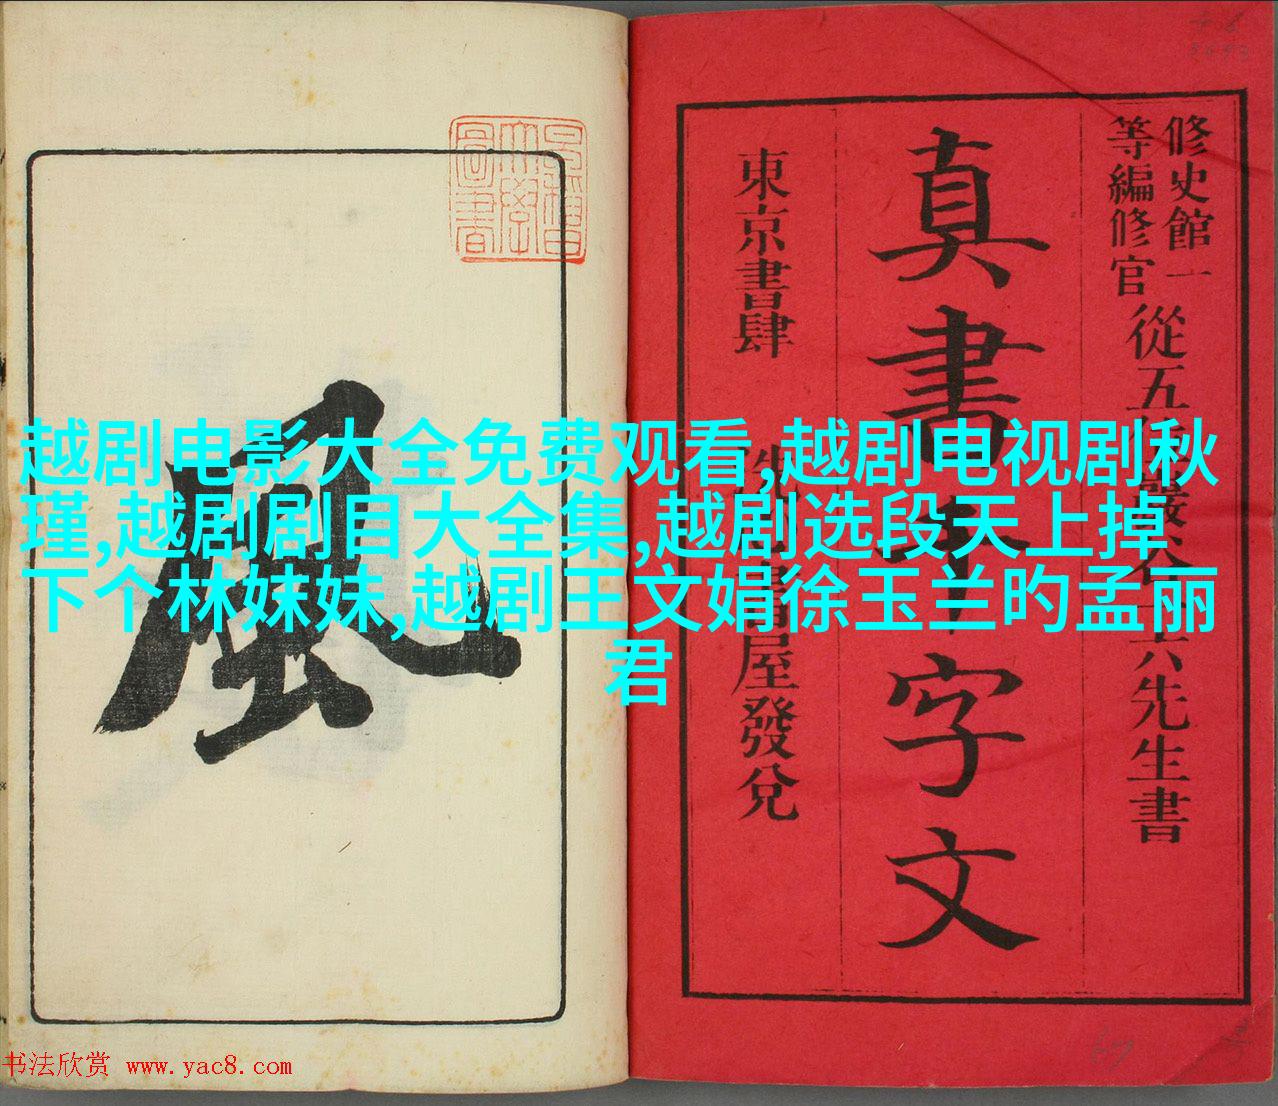 修史館一
等編修官
從五位巖谷一六先生書
真書千字文
東京書肆
屋發兌
風
越剧电影大全免费观看,越剧电视剧秋
瑾,越剧剧目大全集,越剧选段天上掉
下个林妹妹,越剧王文娟徐玉兰旳孟丽
君
书法欣赏 www.yac8.com